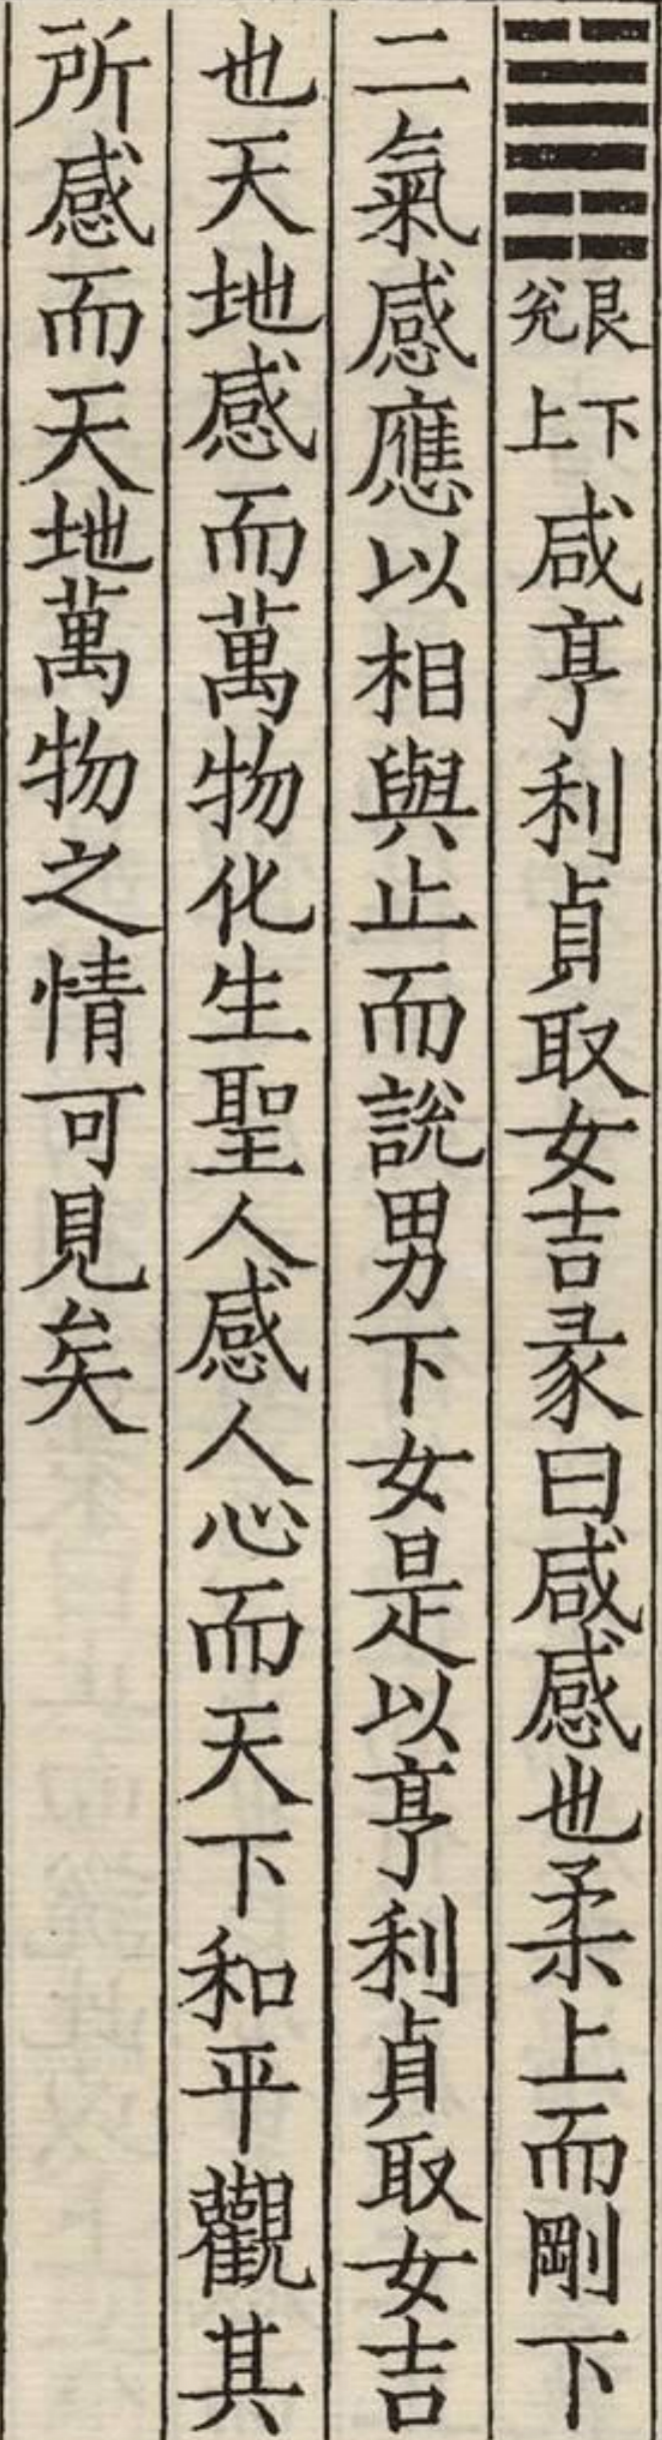 ䷞艮下兌上咸亨利貞取女吉彖曰咸感也柔上而剛下
二氣感應以相與止而說男下女是以亨利貞取女吉
也天地感而萬物化生聖人感人心而天下和平觀其
所感而天地萬物之情可見矣